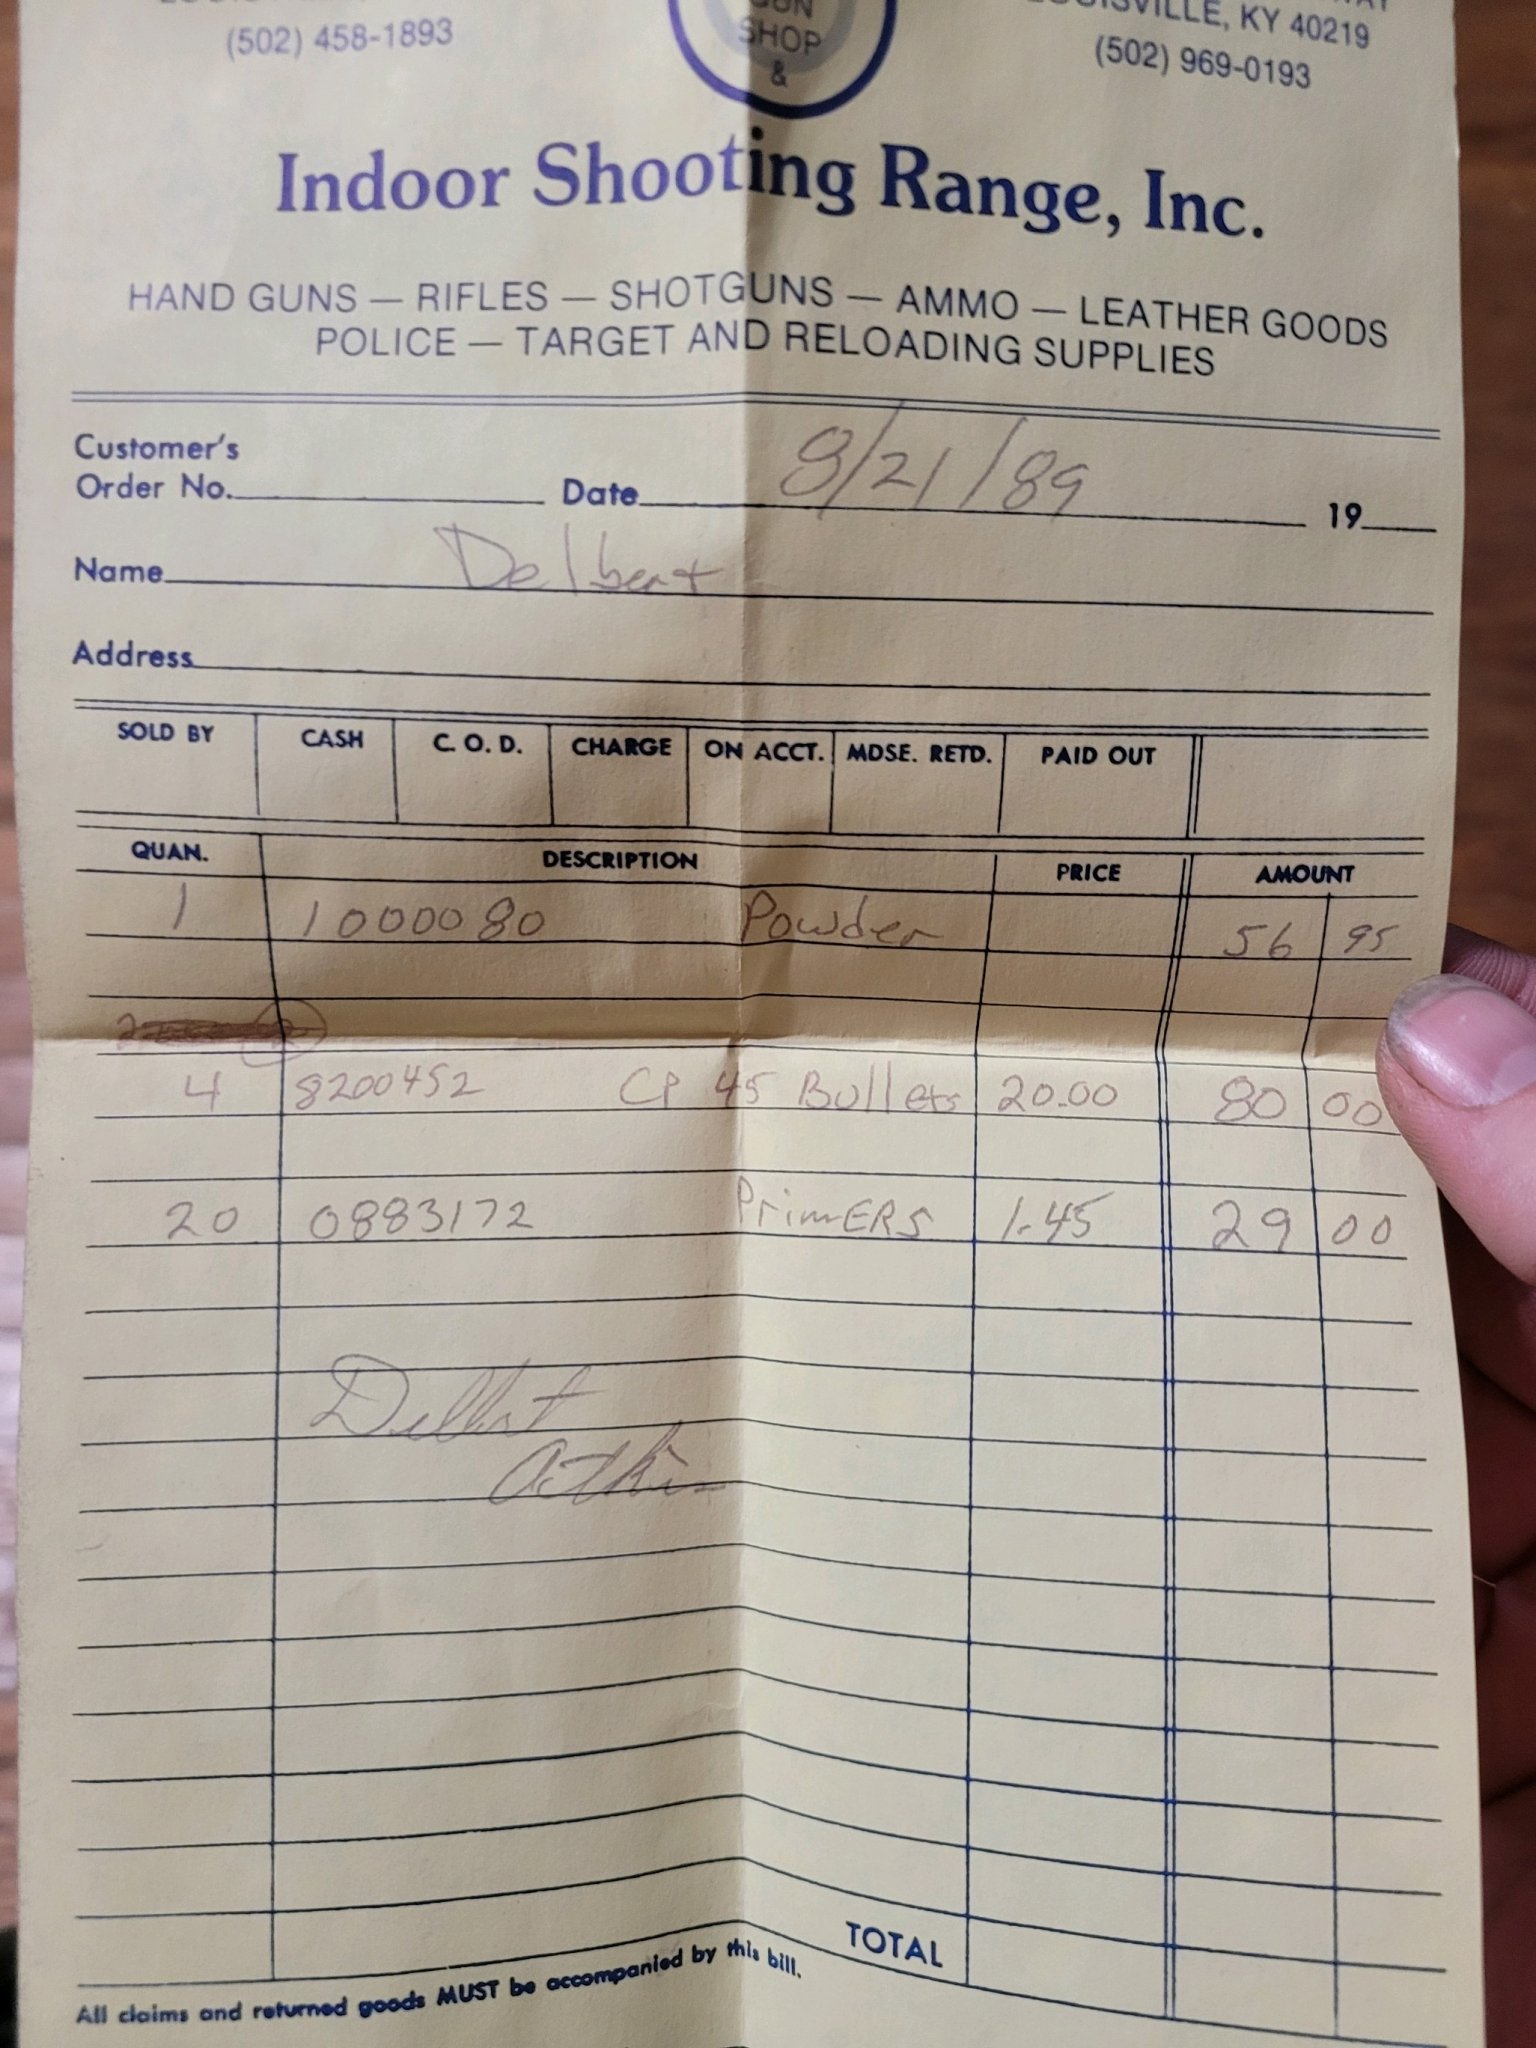 (502) 458-1893
GUN
SHOP
&
LOUISVILLE, KY 40219
(502) 969-0193
Indoor Shooting Range, Inc.
HAND GUNS — RIFLES — SHOTGUNS — AMMO — LEATHER GOODS
POLICE — TARGET AND RELOADING SUPPLIES
Customer's
Order No. Date 8/21/89 19
Name Delbert
Address
SOLD BY CASH C. O. D. CHARGE ON ACCT. MDSE. RETD. PAID OUT
QUAN. DESCRIPTION PRICE AMOUNT
1 1000080 Powder 56 95
4 8200452 CP 45 Bullets 20.00 80 00
20 0883172 PrimERS 1.45 29 00
Delbert
TOTAL
All claims and returned goods MUST be accompanied by this bill.